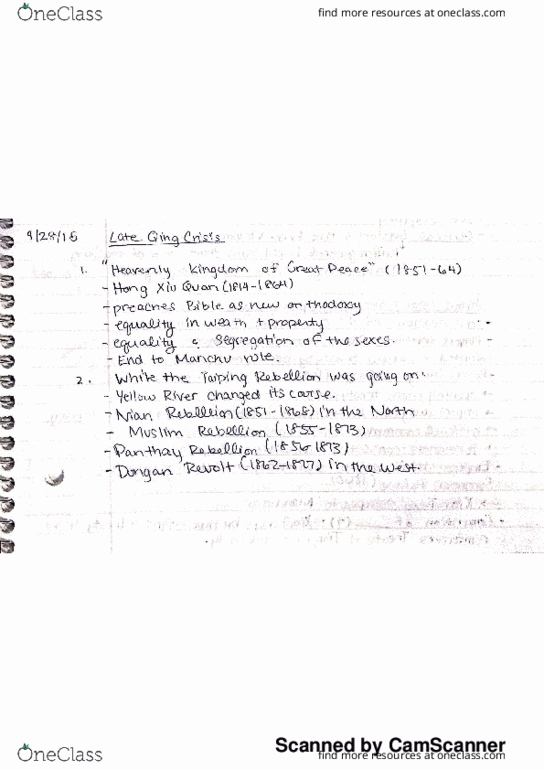 OneClass
find more resources at oneclass.com
9/28/15 Late Qing Crisis
1. "Heavenly Kingdom of Great Peace" (1851-64)
- Hong Xiu Quan (1814-1864)
- preaches Bible as new orthodoxy
- equality in wealth + property
- equality & segregation of the sexes.
- End to Manchu role.
2. While the Taiping Rebellion was going on:
- Yellow River changed its course.
- Nian Rebellion (1851-1868) in the North
- Muslim Rebellion (1855-1873)
- Panthay Rebellion (1856-1873)
- Dungan Revolt (1862-1877) in the west.
Scanned by CamScanner
OneClass
find more resources at oneclass.com